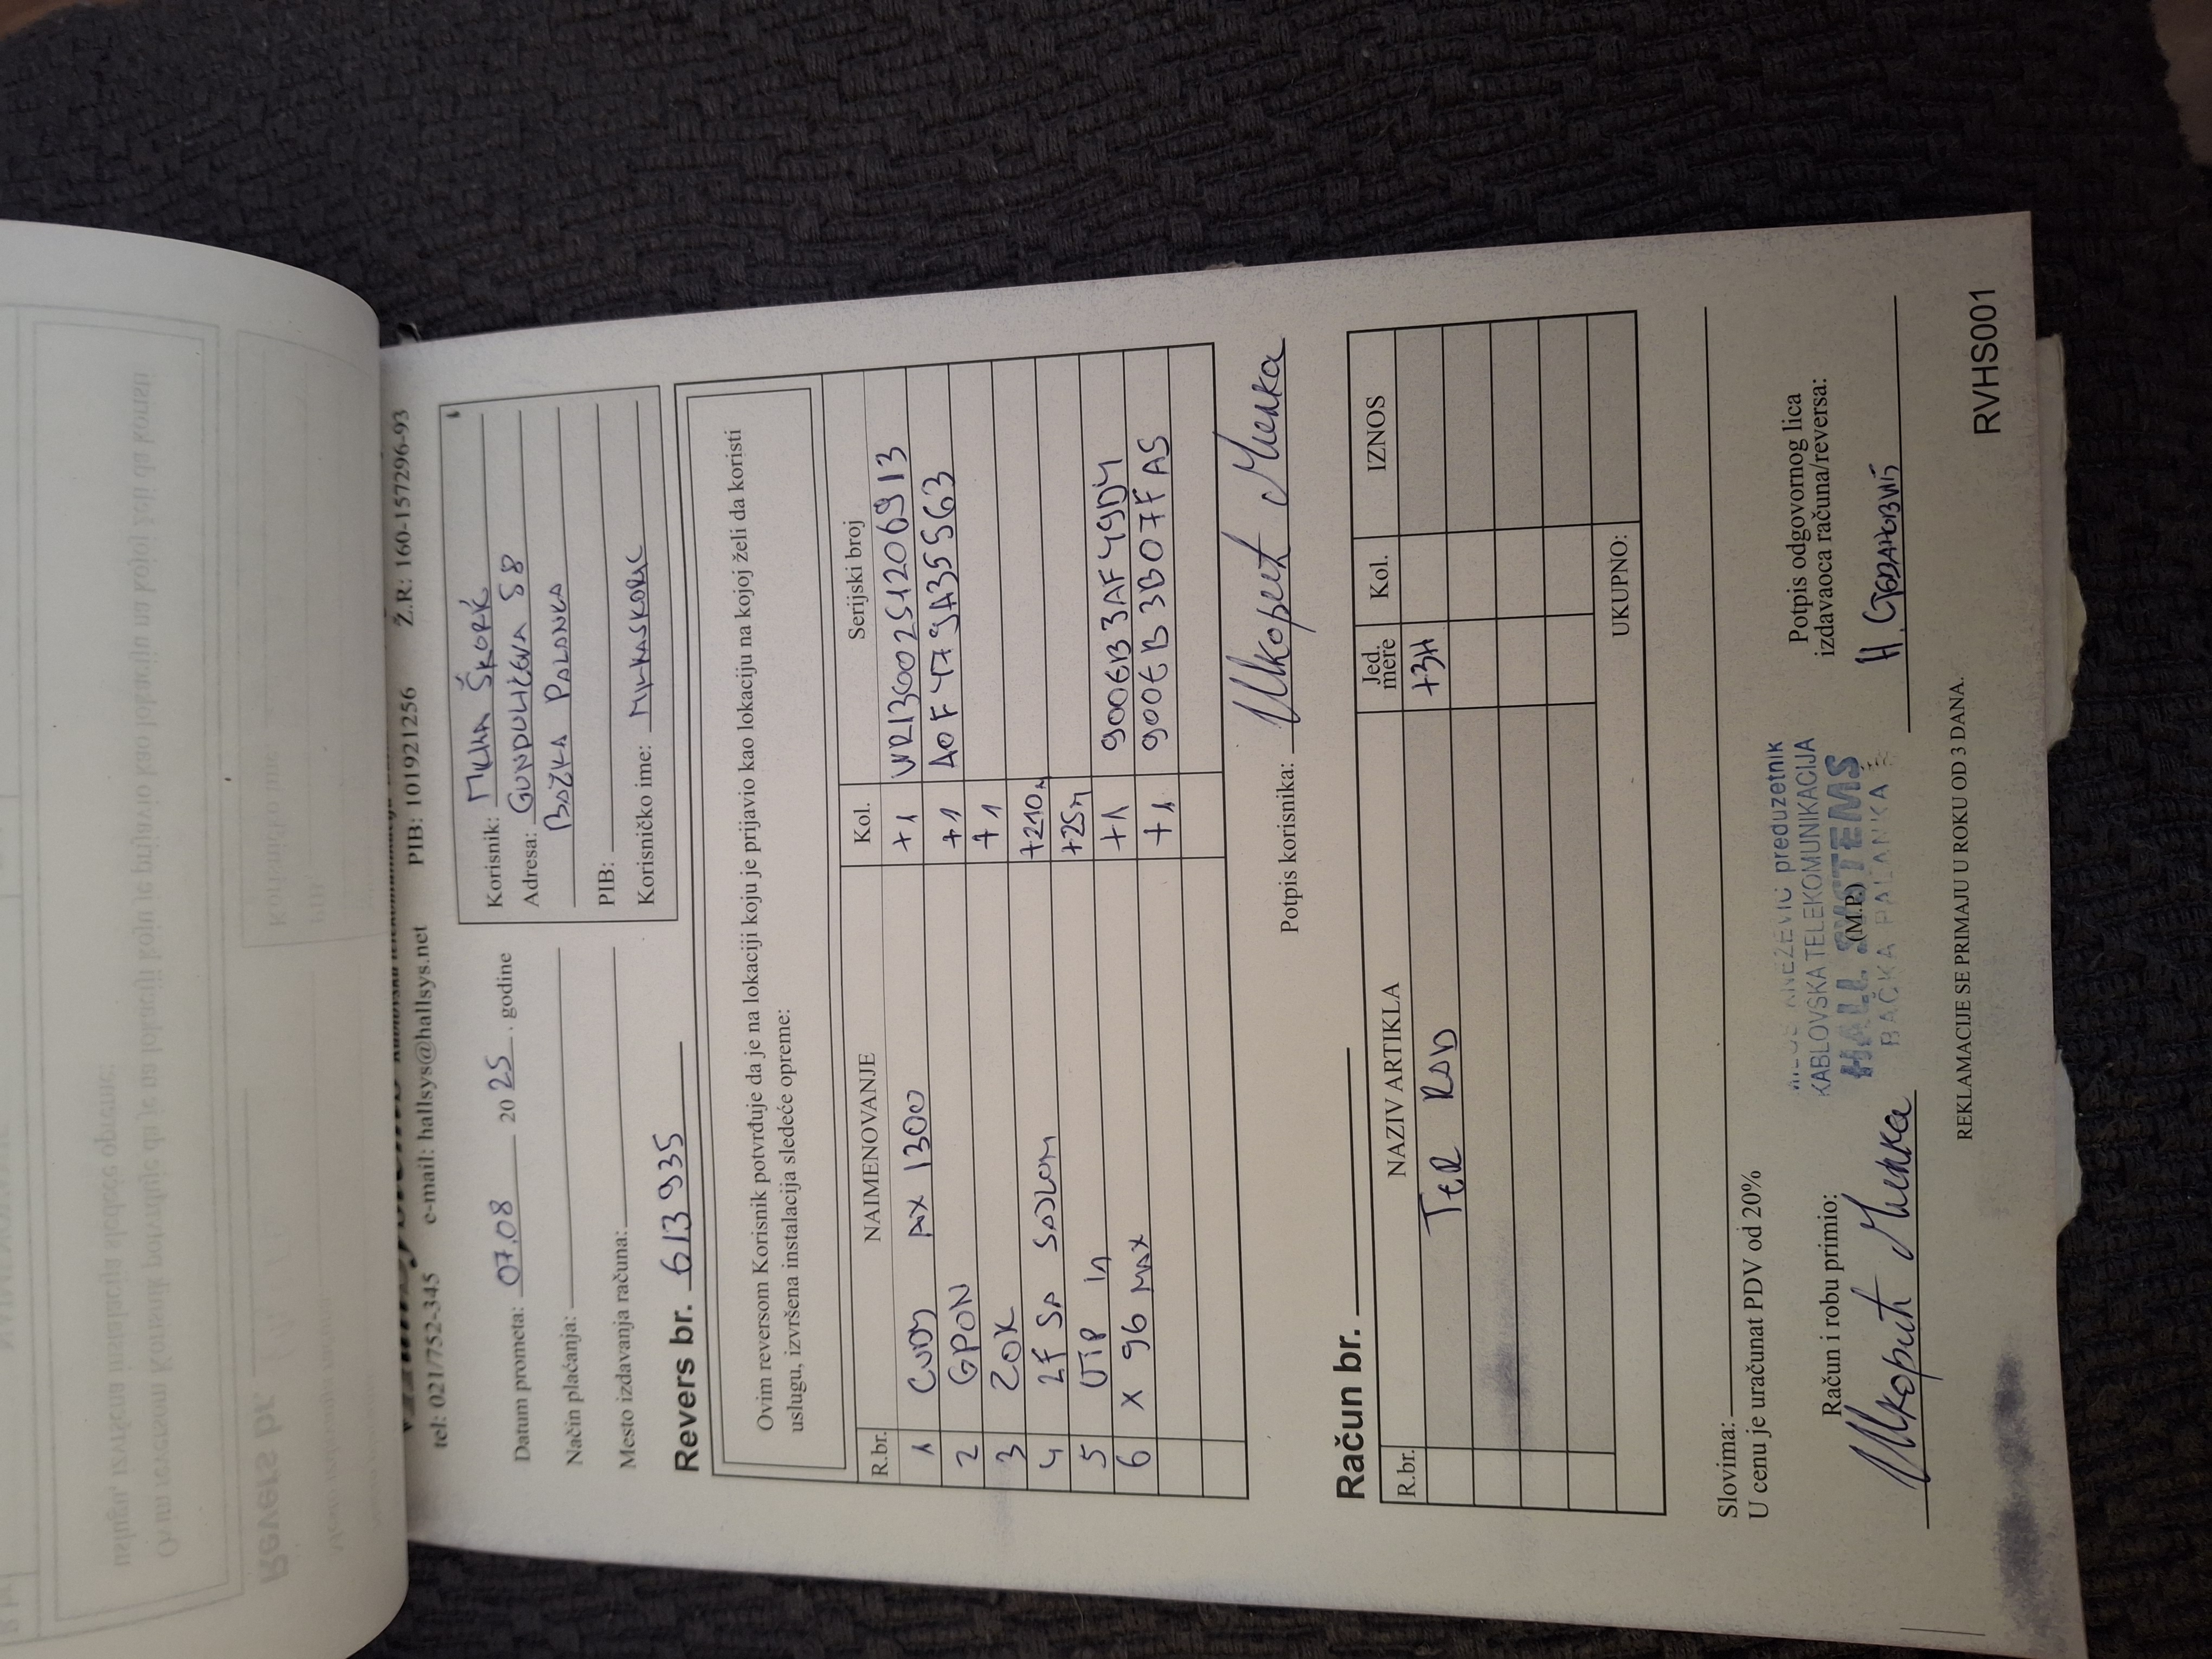 tel: 021/7752-345 e-mail: hallsys@hallsys.net PIB: 101921256 Ž.R: 160-157296-93
Datum prometa: 07.08 2025. godine
Način plaćanja:
Mesto izdavanja računa:
Korisnik: MILKA ŠKORIĆ
Adresa: GUNDULIĆEVA 58
BAČKA PALANKA
PIB:
Korisničko ime: MILKASKORIC
Revers br. 613935
Ovim reversom Korisnik potvrđuje da je na lokaciji koju je prijavio kao lokaciju na kojoj želi da koristi
uslugu, izvršena instalacija sledeće opreme:
R.br. NAIMENOVANJE Kol. Serijski broj
1 CUDY AX 1300 +1 WR1300251206913
2 GPON +1 A0F479A355563
3 ZOK +1
4 2F SA SAJLOM +210m
5 UTP +25m
6 X 96 MAX +1 900EB3AF49D4
+1 900EB3B07FA5
Potpis korisnika: Шкорић Милка
Račun br.
R.br. NAZIV ARTIKLA Jed. mere Kol. IZNOS
TER RAD +3H
UKUPNO:
Slovima:
U cenu je uračunat PDV od 20%
Račun i robu primio:
Шкорић Милка
preduzetnik
KABLOVSKA TELEKOMUNIKACIJA
HALL SYSTEMS
(M.P.)
BAČKA PALANKA
Potpis odgovornog lica
izdavaoca računa/reversa:
REKLAMACIJE SE PRIMAJU U ROKU OD 3 DANA.
RVHS001